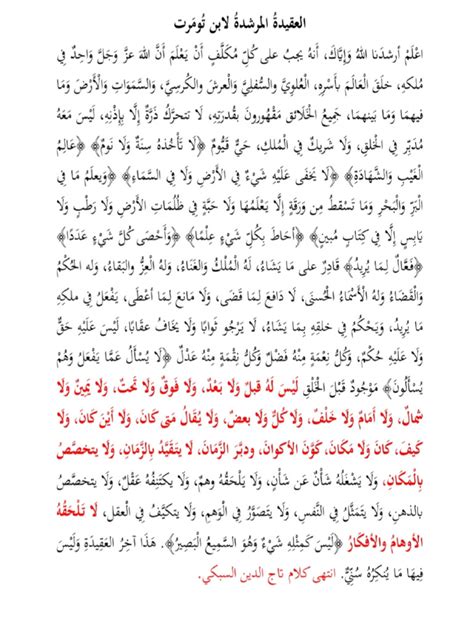 العقيدةُ المرشدةُ لابن تُومَرت
اعْلَمْ أرشدَنا اللهُ وَإيَّاكَ، أنهُ يجبُ على كُلِّ مكَلَّفٍ أنْ يَعْلَمَ أنَّ اللهَ عزَّ وَجَلَّ وَاحِدٌ فِي
مُلكهِ، خلَقَ العَالَمَ بأسْرِهِ، العُلوِيَّ وَالسُّفلِيَّ وَالعرشَ وَالكُرسِيَّ، وَالسَّمَوَاتِ وَالأَرْضَ وَمَا
فيهمَا وَمَا بَينهمَا، جَميعُ الخَلَائقِ مَقْهُورونَ بِقُدرَتِهِ، لَا تتحرَّكُ ذَرَّةٌ إلَّا بِإذْنِهِ، لَيْسَ مَعَهُ
مُدَبِّر فِي الخلقِ، وَلَا شَرِيكٌ فِي الْمُلكِ، حَيٌّ قَيُّومٌ ﴿لَا تَأْخُذهُ سِنَةٌ وَلَا نَوْمٌ﴾ ﴿عَالِمُ
الْغَيْبِ وَالشَّهَادَةِ﴾ ﴿لَا يَخفَى عَلَيْهِ شَيْءٌ فِي الأَرْضِ وَلَا فِي السَّمَاءِ﴾ ﴿وَيعلَمُ مَا فِي
الْبَرِّ وَالْبَحْرِ وَمَا تَسْقطُ مِن وَرَقَةٍ إلَّا يَعْلَمُهَا وَلَا حَبَّةٍ فِي ظُلُمَاتِ الأَرْضِ وَلَا رَطْبٍ وَلَا
يَابِسٍ إلَّا فِي كِتَابٍ مُبِينٍ﴾ ﴿أحَاطَ بِكُلِّ شَيْءٍ عِلْمًا﴾ ﴿وَأَحْصَى كُلَّ شَيْءٍ عَدَدًا﴾
﴿فَعَّالٌ لِمَا يُرِيدُ﴾ قَادِرٌ عَلَى مَا يَشَاءُ، لَهُ الْمُلْكُ وَالغَنَاءُ، وَلَهُ العِزُّ وَالبَقَاءُ، وَله الحُكْمُ
وَالْقَضَاءُ وَلهُ الْأَسْمَاءُ الْحُسنَى، لَا دَافعَ لِمَا قَضَى، وَلَا مَانعَ لِمَا أعْطَى، يَفْعَلُ فِي ملكِهِ
مَا يُرِيدُ، وَيَحْكُمُ فِي خلقِهِ بِمَا يَشَاءُ، لَا يَرْجُو ثَوَابًا وَلَا يَخَافُ عِقَابًا، لَيْسَ عَلَيْهِ حَقٌّ
وَلَا عَلَيْهِ حُكْمٌ، وَكُلُّ نِعمَةٍ مِنهُ فَضْلٌ وَكُلُّ نِقْمَةٍ مِنْهُ عَدْلٌ ﴿لَا يُسْأَلُ عَمَّا يَفْعَلُ وَهُمْ
يُسأَلُونَ﴾ مَوْجُودٌ قَبْلَ الْخَلْقِ لَيْسَ لَهُ قَبلٌ وَلَا بَعْدٌ، وَلَا فَوقٌ وَلَا تَحتٌ، وَلَا يَمِينٌ وَلَا
شمالٌ، وَلَا أَمَامٌ وَلَا خَلْفٌ، وَلَا كُلٌّ وَلَا بعضٌ، وَلَا يُقَالُ مَتى كَانَ، وَلَا أيْنَ كَانَ وَلَا
كَيفَ، كَانَ وَلَا مَكَانَ، كَوَّنَ الأكوانَ، ودبَّرَ الزَّمَانَ، لَا يتقيَّدُ بِالزَّمَانِ، وَلَا يتخصَّصُ
بِالْمَكَانِ، وَلَا يَشْغَلُهُ شَأْنٌ عَن شَأْنٍ، وَلَا يَلْحَقُهُ وهمٌ، وَلَا يكتَنِفُهُ عَقْلٌ، وَلَا يتخصَّصُ
بالذهنِ، وَلَا يتمثَّلُ فِي النَّفسِ، وَلَا يَتَصَوَّرُ فِي الْوَهمِ، وَلَا يتكيَّفُ فِي العقلِ، لَا تَلْحَقُهُ
الأوهَامُ وَالأفكَارُ ﴿لَيْسَ كَمثلِهِ شَيْءٌ وَهُوَ السَّمِيعُ الْبَصِيرُ﴾. هَذَا آخِرُ العَقِيدَةِ وَلَيْسَ
فِيهَا مَا يُنكِرُهُ سُنِّيٌّ. انتهى كلام تاج الدين السبكي.